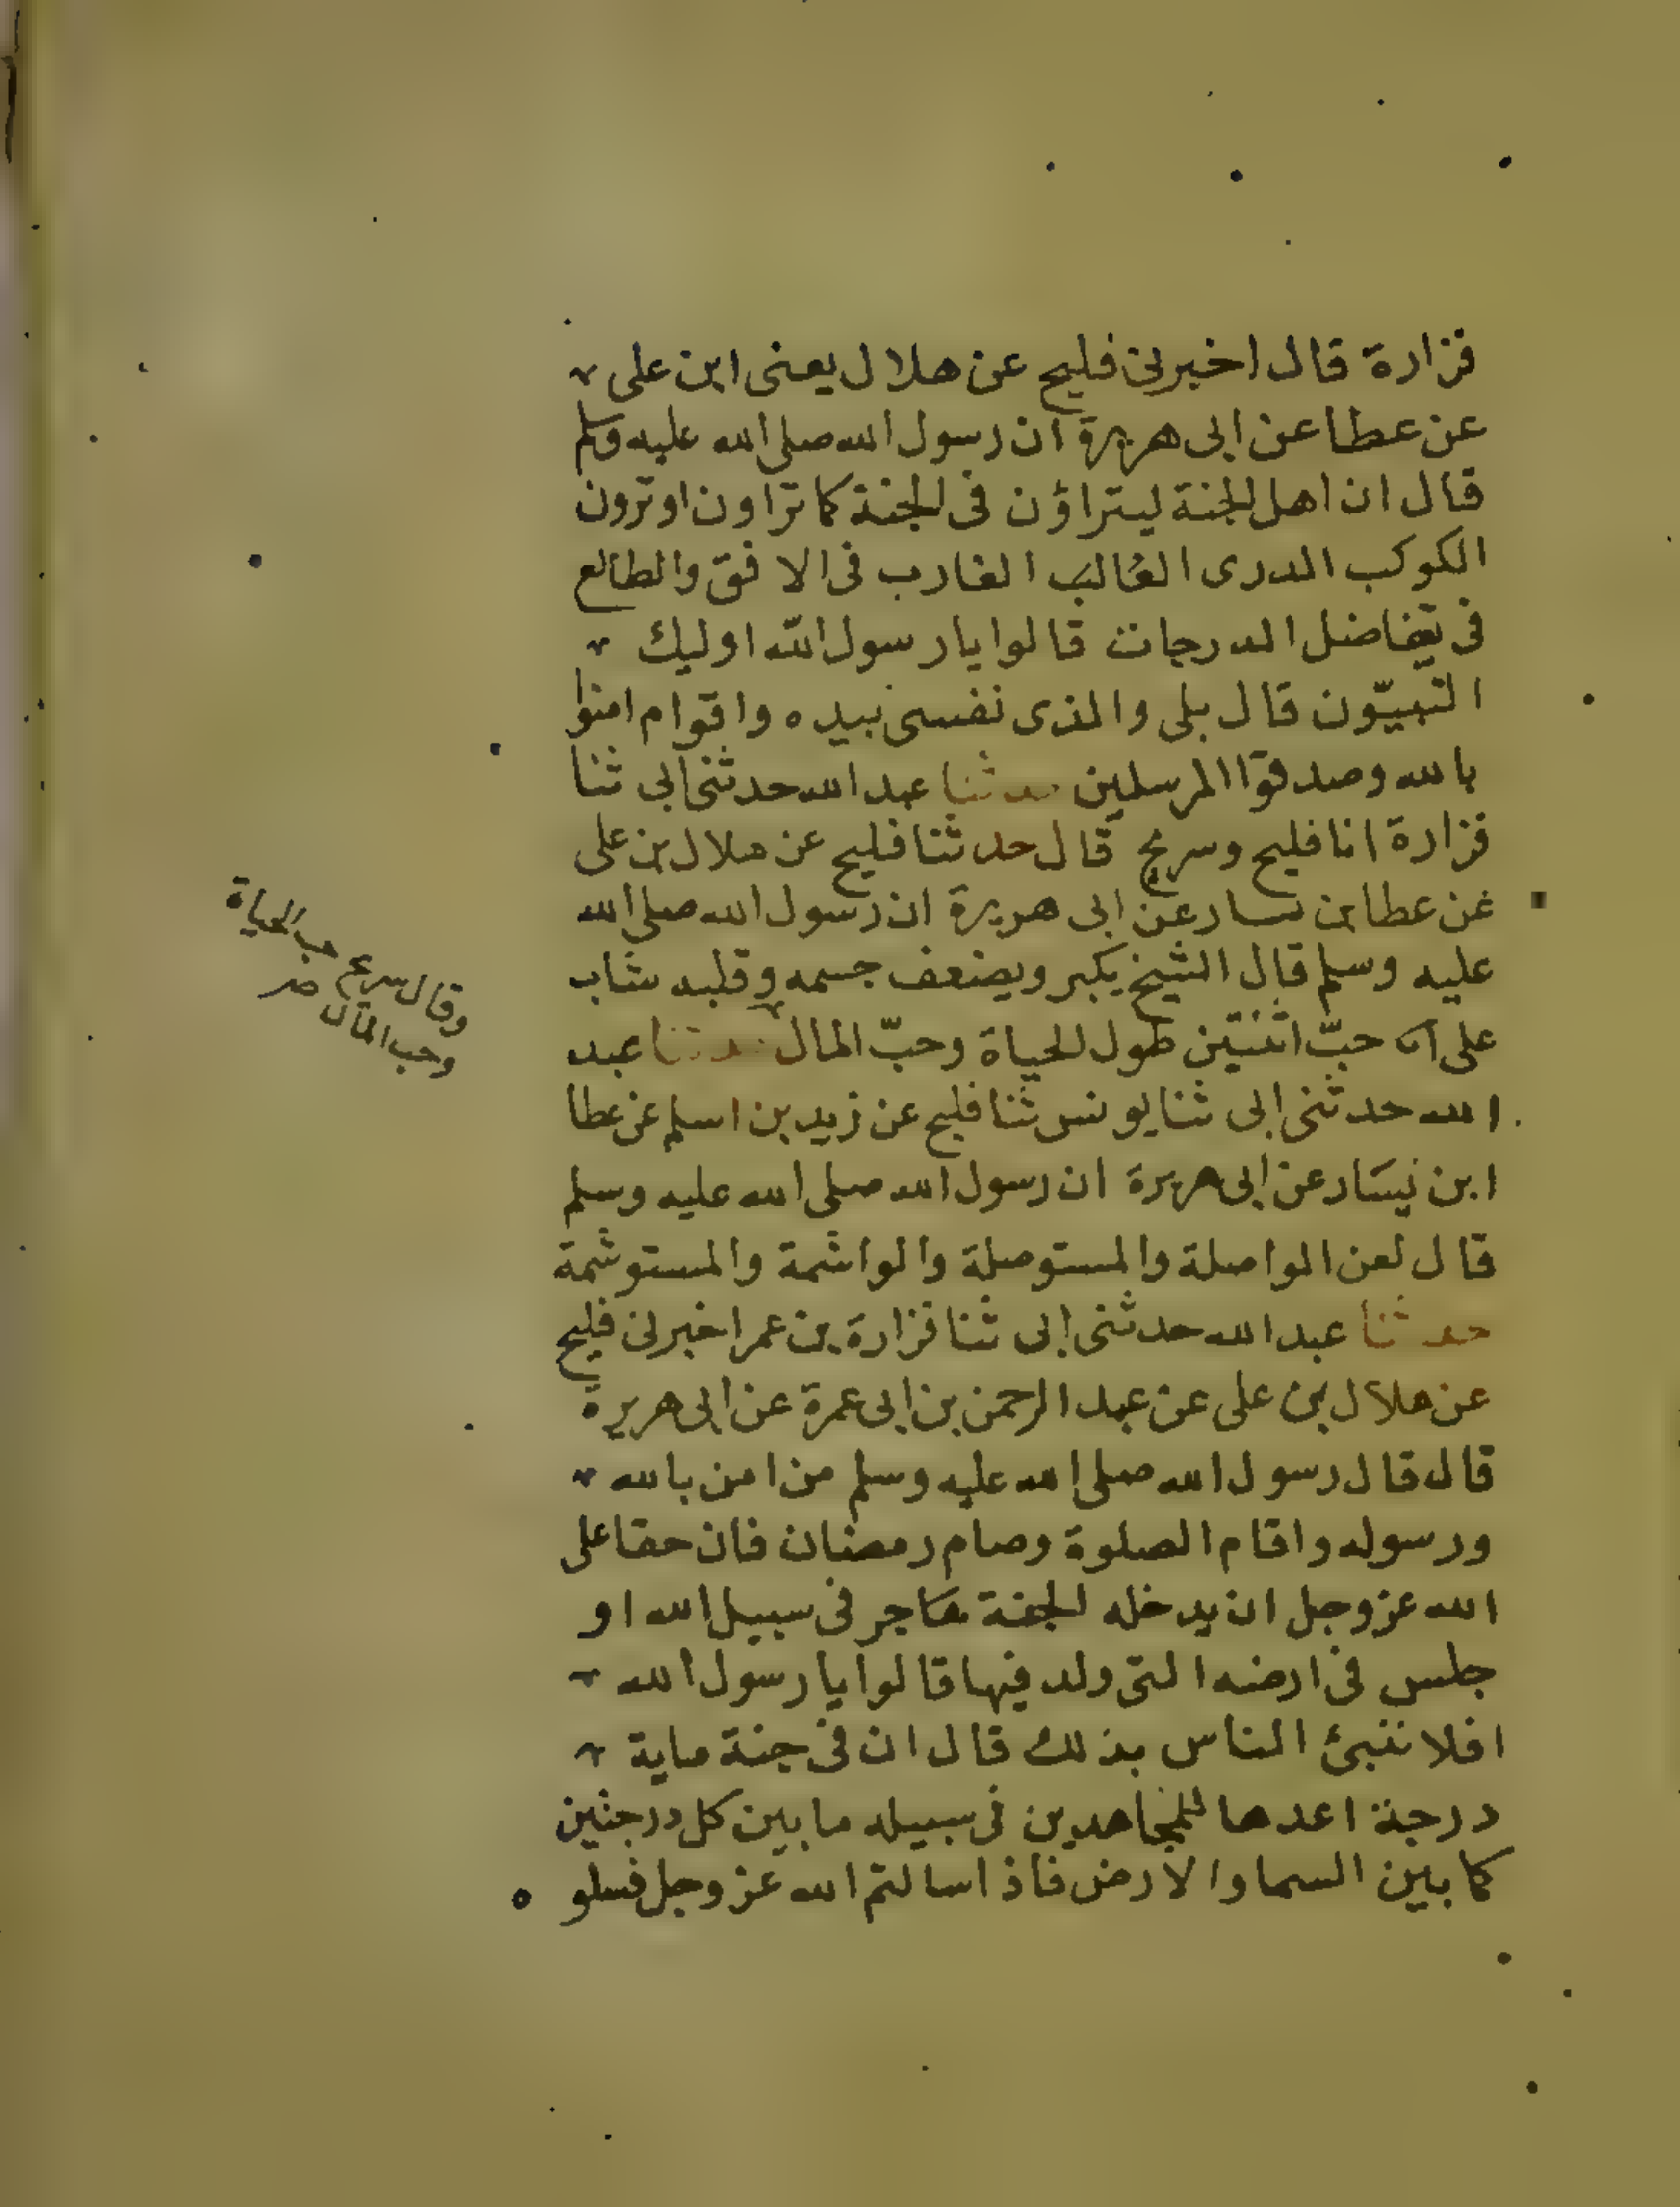 فزارة قال اخبرنى فليح عن هلال يعنى ابن على
عن عطا عن ابى هريرة ان رسول الله صلى الله عليه وسلم
قال ان اهل الجنة ليتراؤن فى الجنة كما تراون او ترون
الكوكب الدرى الغالب الغارب فى الافق والطالع
فى تفاضل الدرجات قالوا يا رسول الله اوليك
النبيّون قال بلى والذى نفسى بيده واقوام امنوا
بالله وصدقوا المرسلين حدثنا عبد الله حدثنى ابى ثنا
فزارة انا فليح وسريج قال حدثنا فليح عن هلال بن على
عن عطا بن يسار عن ابى هريرة ان رسول الله صلى الله
عليه وسلم قال الشيخ يكبر ويضعف جسمه وقلبه شاب
على حبّ اثنتين طول الحياة وحبّ المال حدثنا عبد
الله حدثنى ابى ثنا يونس ثنا فليح عن زيد بن اسلم عن عطا
ابن يسار عن ابى هريرة ان رسول الله صلى الله عليه وسلم
قال لعن الواصلة والمستوصلة والواشمة والمستوشمة
حدثنا عبد الله حدثنى ابى ثنا فزارة بن عمر اخبرنى فليح
عن هلال بن على عن عبد الرحمن بن ابى عمرة عن ابى هريرة
قال قال رسول الله صلى الله عليه وسلم من امن بالله
ورسوله واقام الصلوة وصام رمضان فان حقا على
الله عز وجل ان يدخله الجنة هاجر فى سبيل الله او
جلس فى ارضه التى ولد فيها قالوا يا رسول الله
افلا ننبئ الناس بذلك قال ان فى جنة ماية
درجة اعدها للمجاهدين فى سبيله ما بين كل درجتين
كما بين السما والارض فاذا سالتم الله عز وجل فسلو
وقال سريج حب الحياة
وحب المال